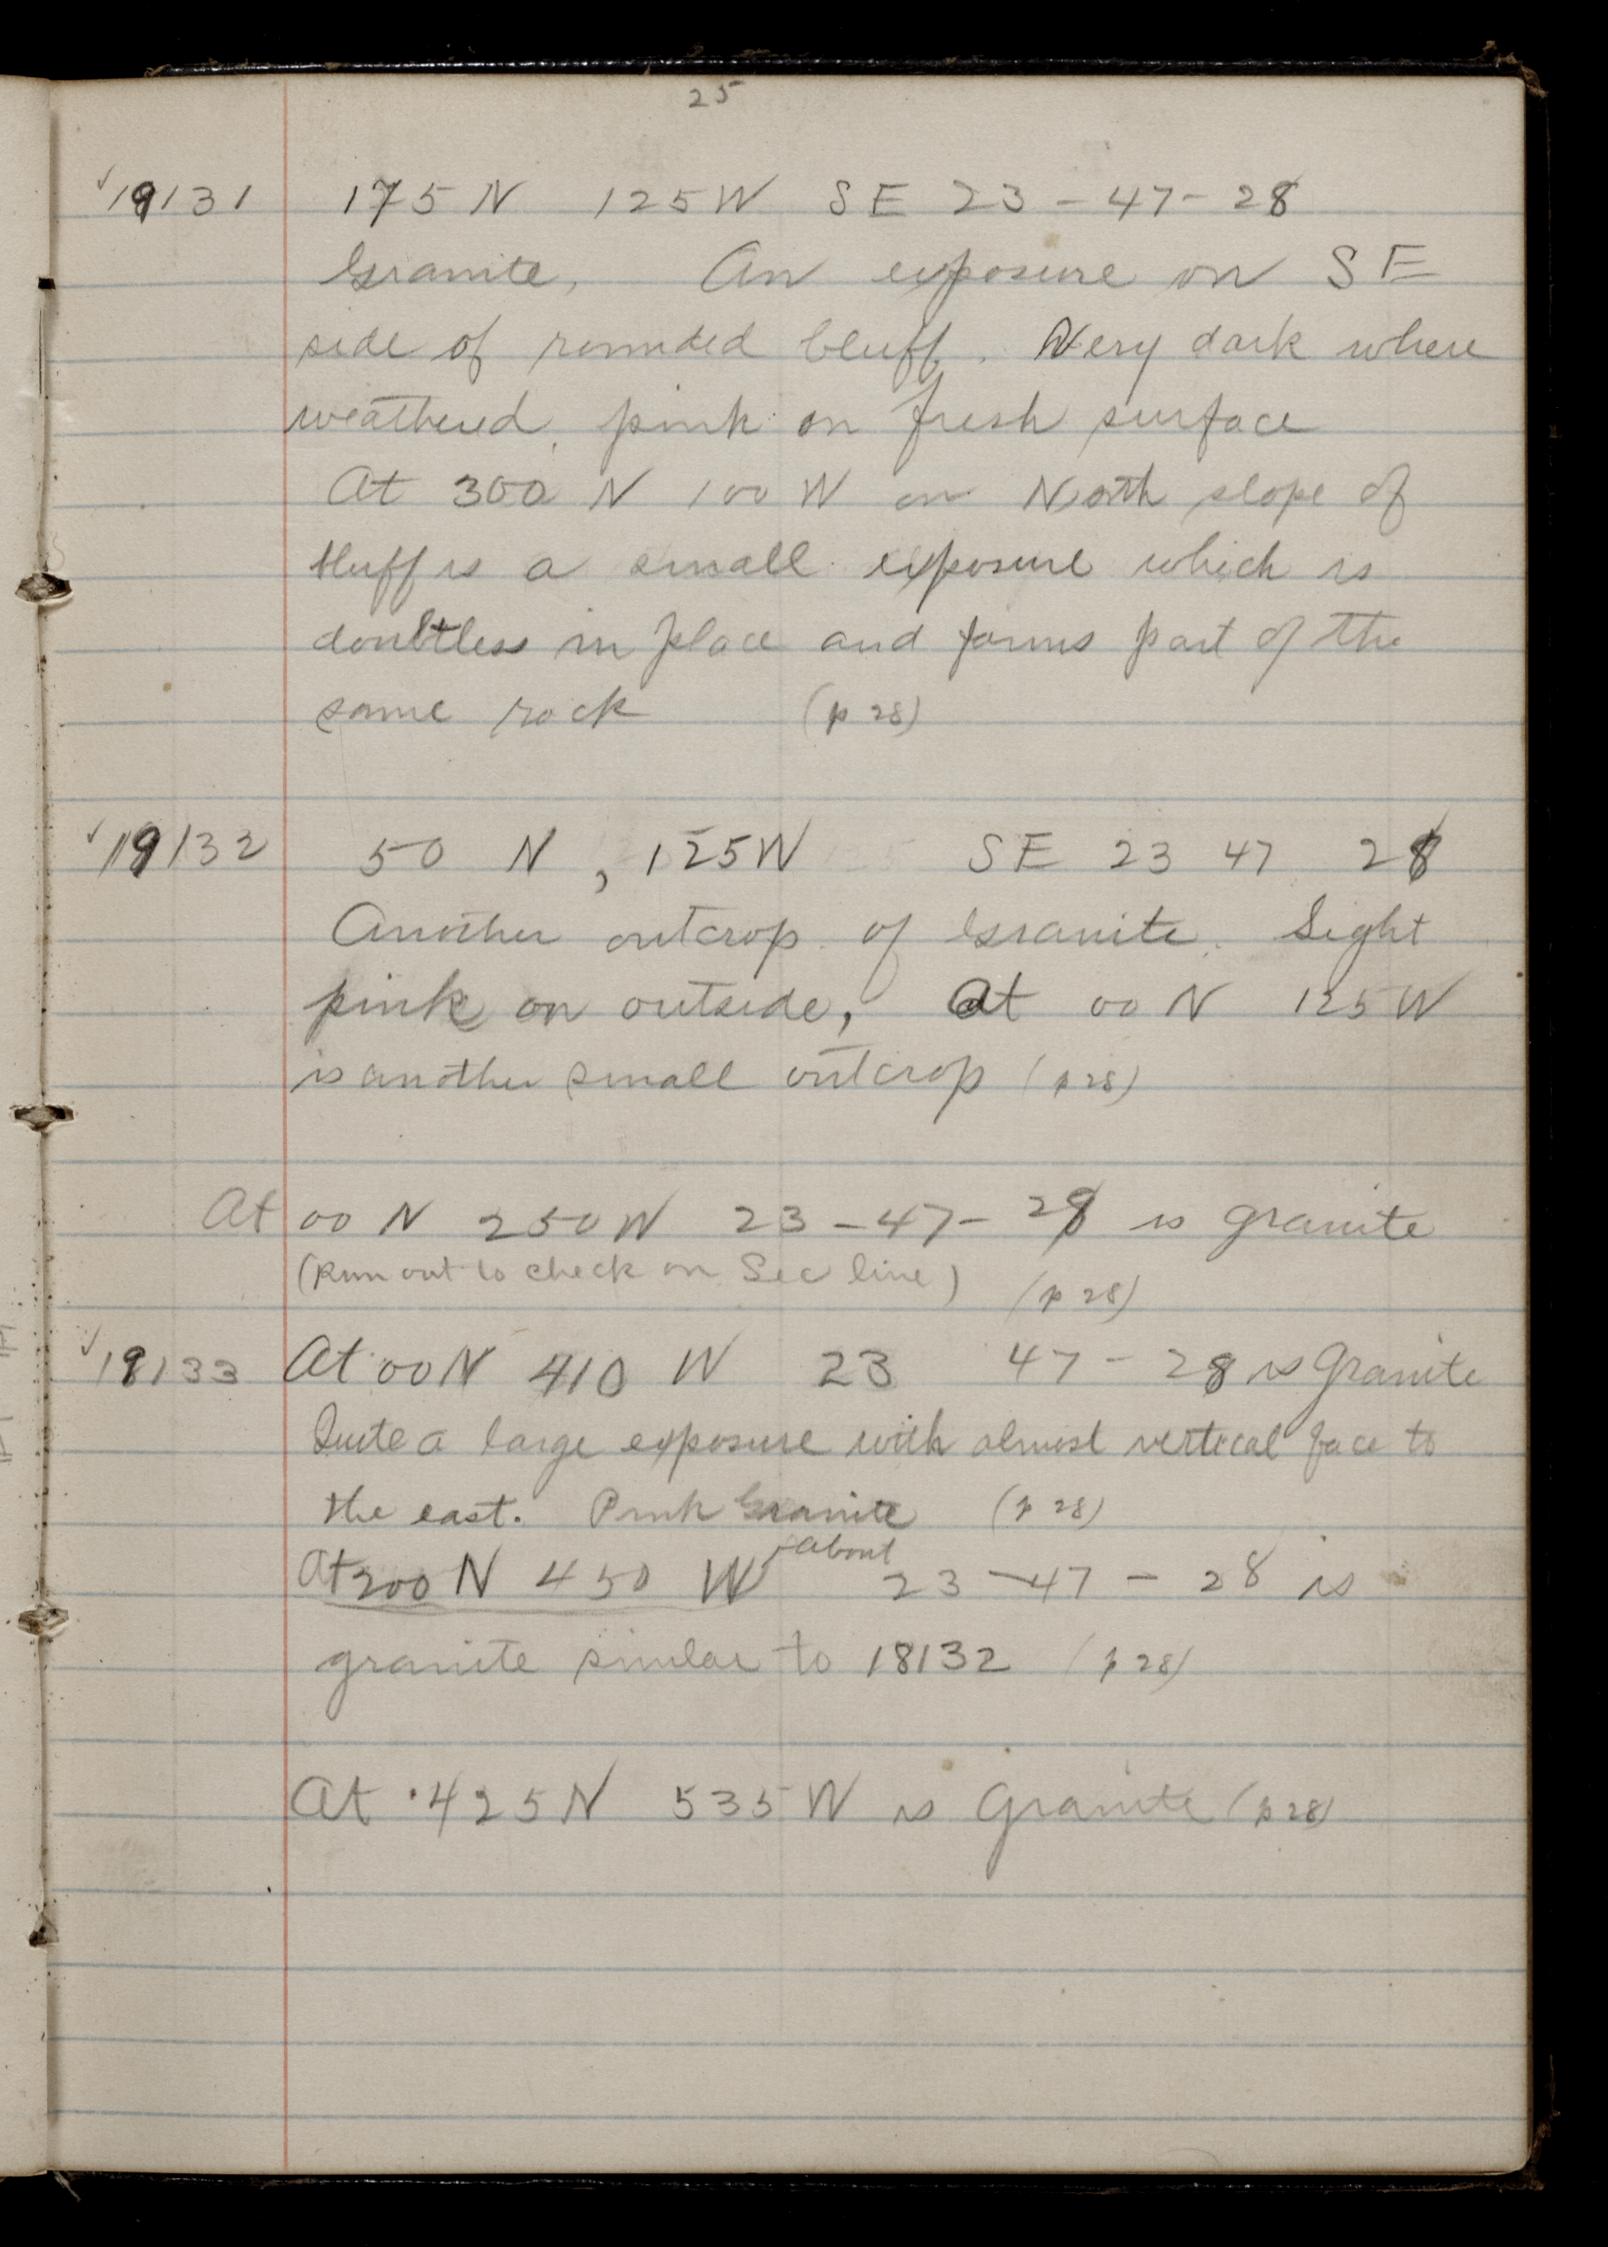 25
✓19131 175 N 125 W SE 23 - 47 - 28
Granite, An exposure on SE
side of rounded bluff. Very dark where
weathered, pink on fresh surface
At 300 N 100 W on North slope of
bluff is a small exposure which is
doubtless in place and forms part of the
same rock (p 28)
✓19132 50 N, 125 W SE 23 47 28
Another outcrop of Granite. Light
pink on outside, At 00 N 125 W
is another small outcrop (p 28)
At 00 N 250 W 23 - 47 - 28 is granite
(Run out to check on Sec line) (p 28)
✓18133 At 00 N 410 W 23 47 - 28 is Granite
Quite a large exposure with almost vertical face to
the east. Pink Granite (p 28)
about
At 200 N 450 W 23 - 47 - 28 is
granite similar to 18132 (p 28)
At 425 N 535 W is Granite (p 28)